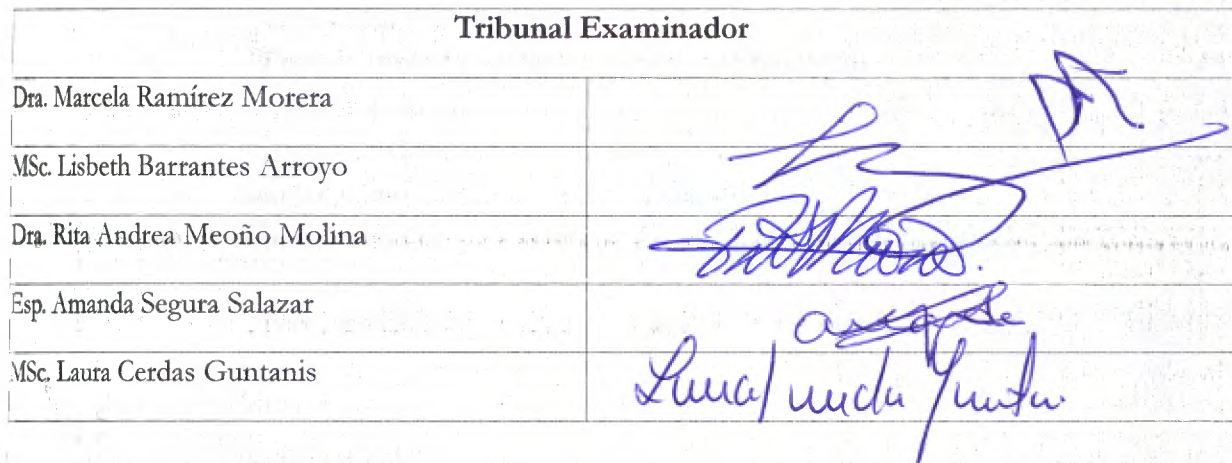 Tribunal Examinador
Dra. Marcela Ramírez Morera
MSc. Lisbeth Barrantes Arroyo
Dra. Rita Andrea Meoño Molina
Esp. Amanda Segura Salazar
MSc. Laura Cerdas Guntanis